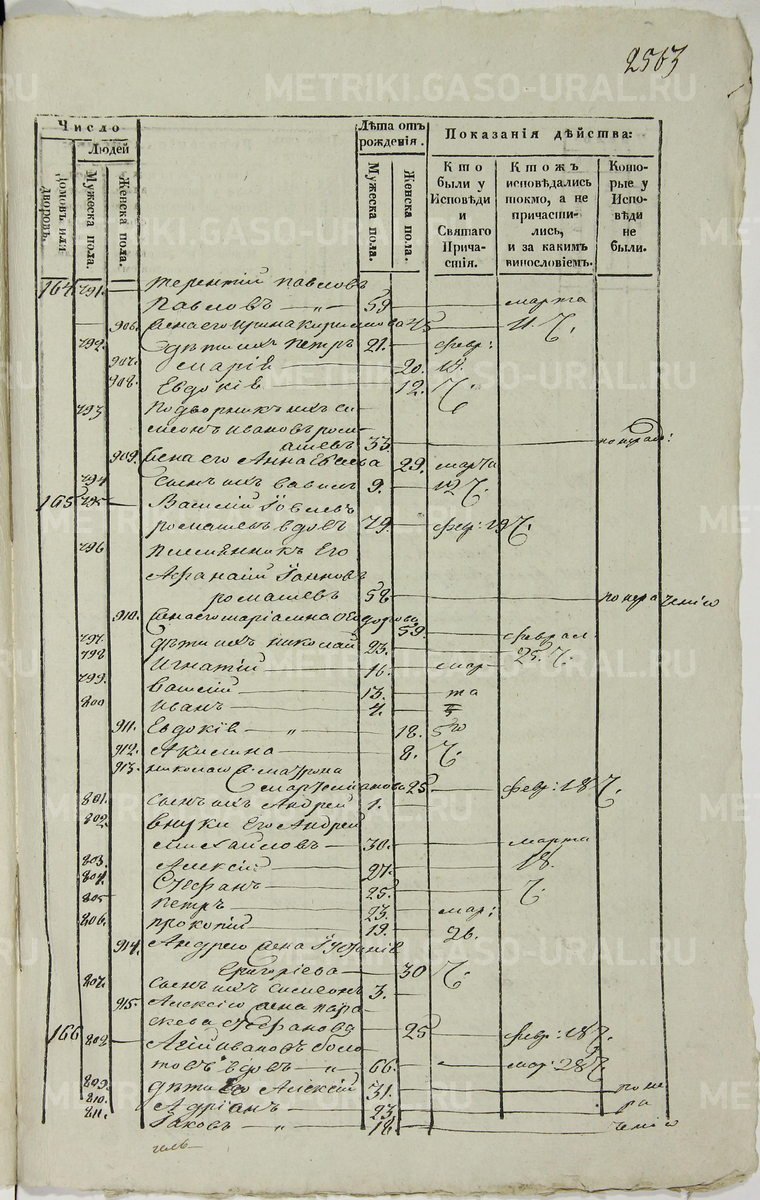 2563
Число
Людей
Домовъ или дворовъ.
Мужеска пола.
Женска пола.
Лѣта отъ рожденія.
Мужеска пола.
Женска пола.
Показанія дѣйства:
Кто были у Исповѣди и Святаго Причастія.
Ктожъ исповѣдались токмо, а не причастились, и за какимъ винословіемъ.
Которые у Исповѣди не были.
164 791. терентій павловъ
Павловъ 59 марта
906. жена его ирина 45 11
792. дѣти ихъ петръ 21. февр:
907. марія 20. 19.
908. Евдокія 12.
793 подворникъ ихъ си
меонъ ивановъ рома
шевъ 33.
909. жена его Анна 29. марта
794 сынъ ихъ 9. 12
165 795 Василий
ромашевъ вдовъ 79. февр: 19
796 племянникъ Его
Афанасий
ромашевъ 58 по нера ченію
910. жена его 59. феврал
797. дѣти ихъ николай 23. 25.
798 Игнатій 16. мар
799. василій 13. та
800 иванъ 4. 5
911. Евдокія 18. 5го
912. Акилина 8.
913. николаю ж. матрона
25 февр: 18
801. сынъ ихъ Андрей 1.
802. внуки Его Андрей
михайловъ 30. марта
803. Алексій 27. 18.
804. Стефанъ 25.
805 петръ 23. мар:
806. прокопій 19. 26.
914. Андрею жена Іустинія
Григоріева 30
807. сынъ ихъ симеонъ 3.
915. Алексію жена пара
скева Стефанова 25 февр: 18
166 808 ивановъ боло
товъ вдовъ 66. мар: 28
809. дѣти Его Алексій 31. по не
810. Адріанъ 23 ра
811. Іаковъ 18 ченію